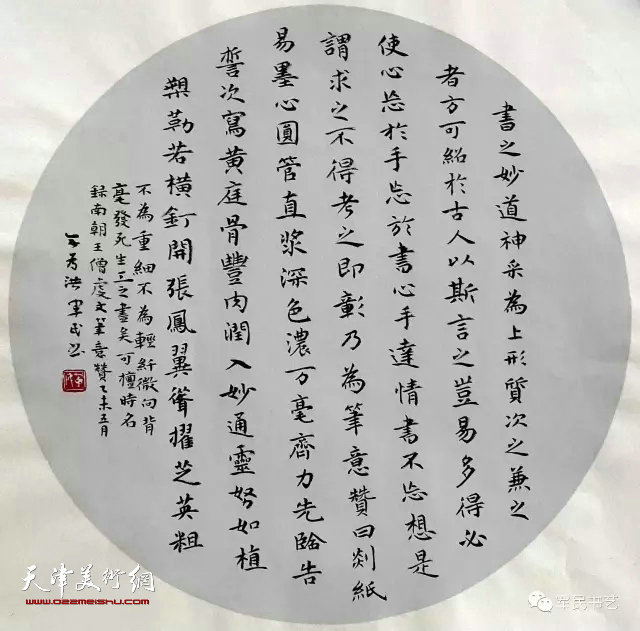 書之妙道神采為上形質次之兼之
者方可紹於古人以斯言之豈易多得必
使心忘於手忘於書心手達情書不忘想是
謂求之不得考之即彰乃為筆意贊曰剡紙
易墨心圓管直漿深色濃万毫齊力先臨告
誓次寫黃庭骨豐肉潤入妙通靈努如植
槊勒若橫釘開張鳳翼聳擢芝英粗
不為重細不為輕纖微向背
毫發死生工之盡矣可擅時名
録南朝王僧虔文筆意贊乙未五月
軍民書
天津美術網
www.022meishu.com
军民书艺